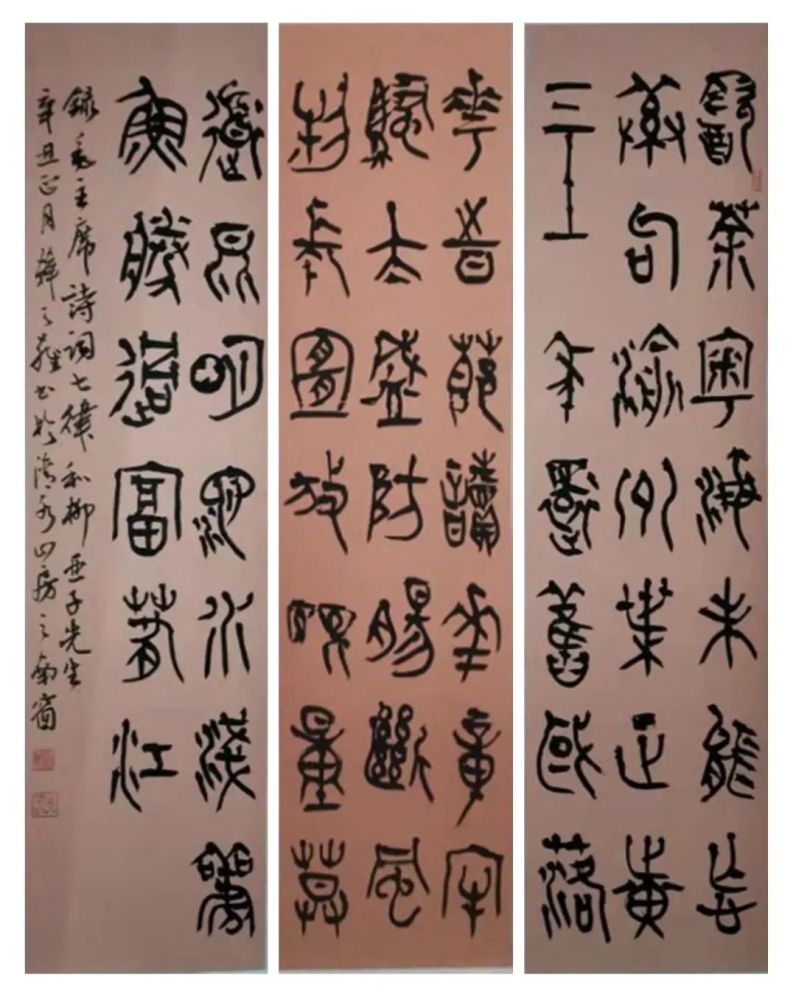 飲茶粵海未能忘
索句渝州葉正黃
三十一年還舊國落
花時節讀華章牢
騷太盛防腸斷風
物長宜放眼量莫
道昆明池水淺觀
魚勝過富春江
錄毛主席詩詞七律和柳亞子先生
辛丑正月書於山房之南窗